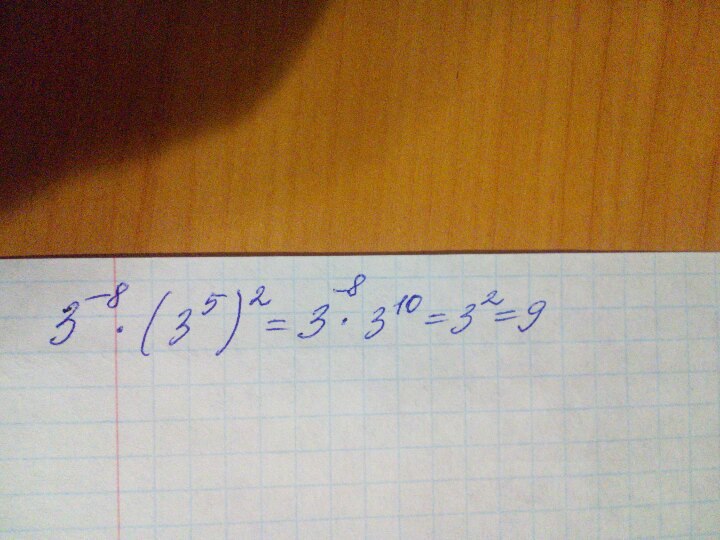 3⁻⁸ · (3⁵)² = 3⁻⁸ · 3¹⁰ = 3² = 9